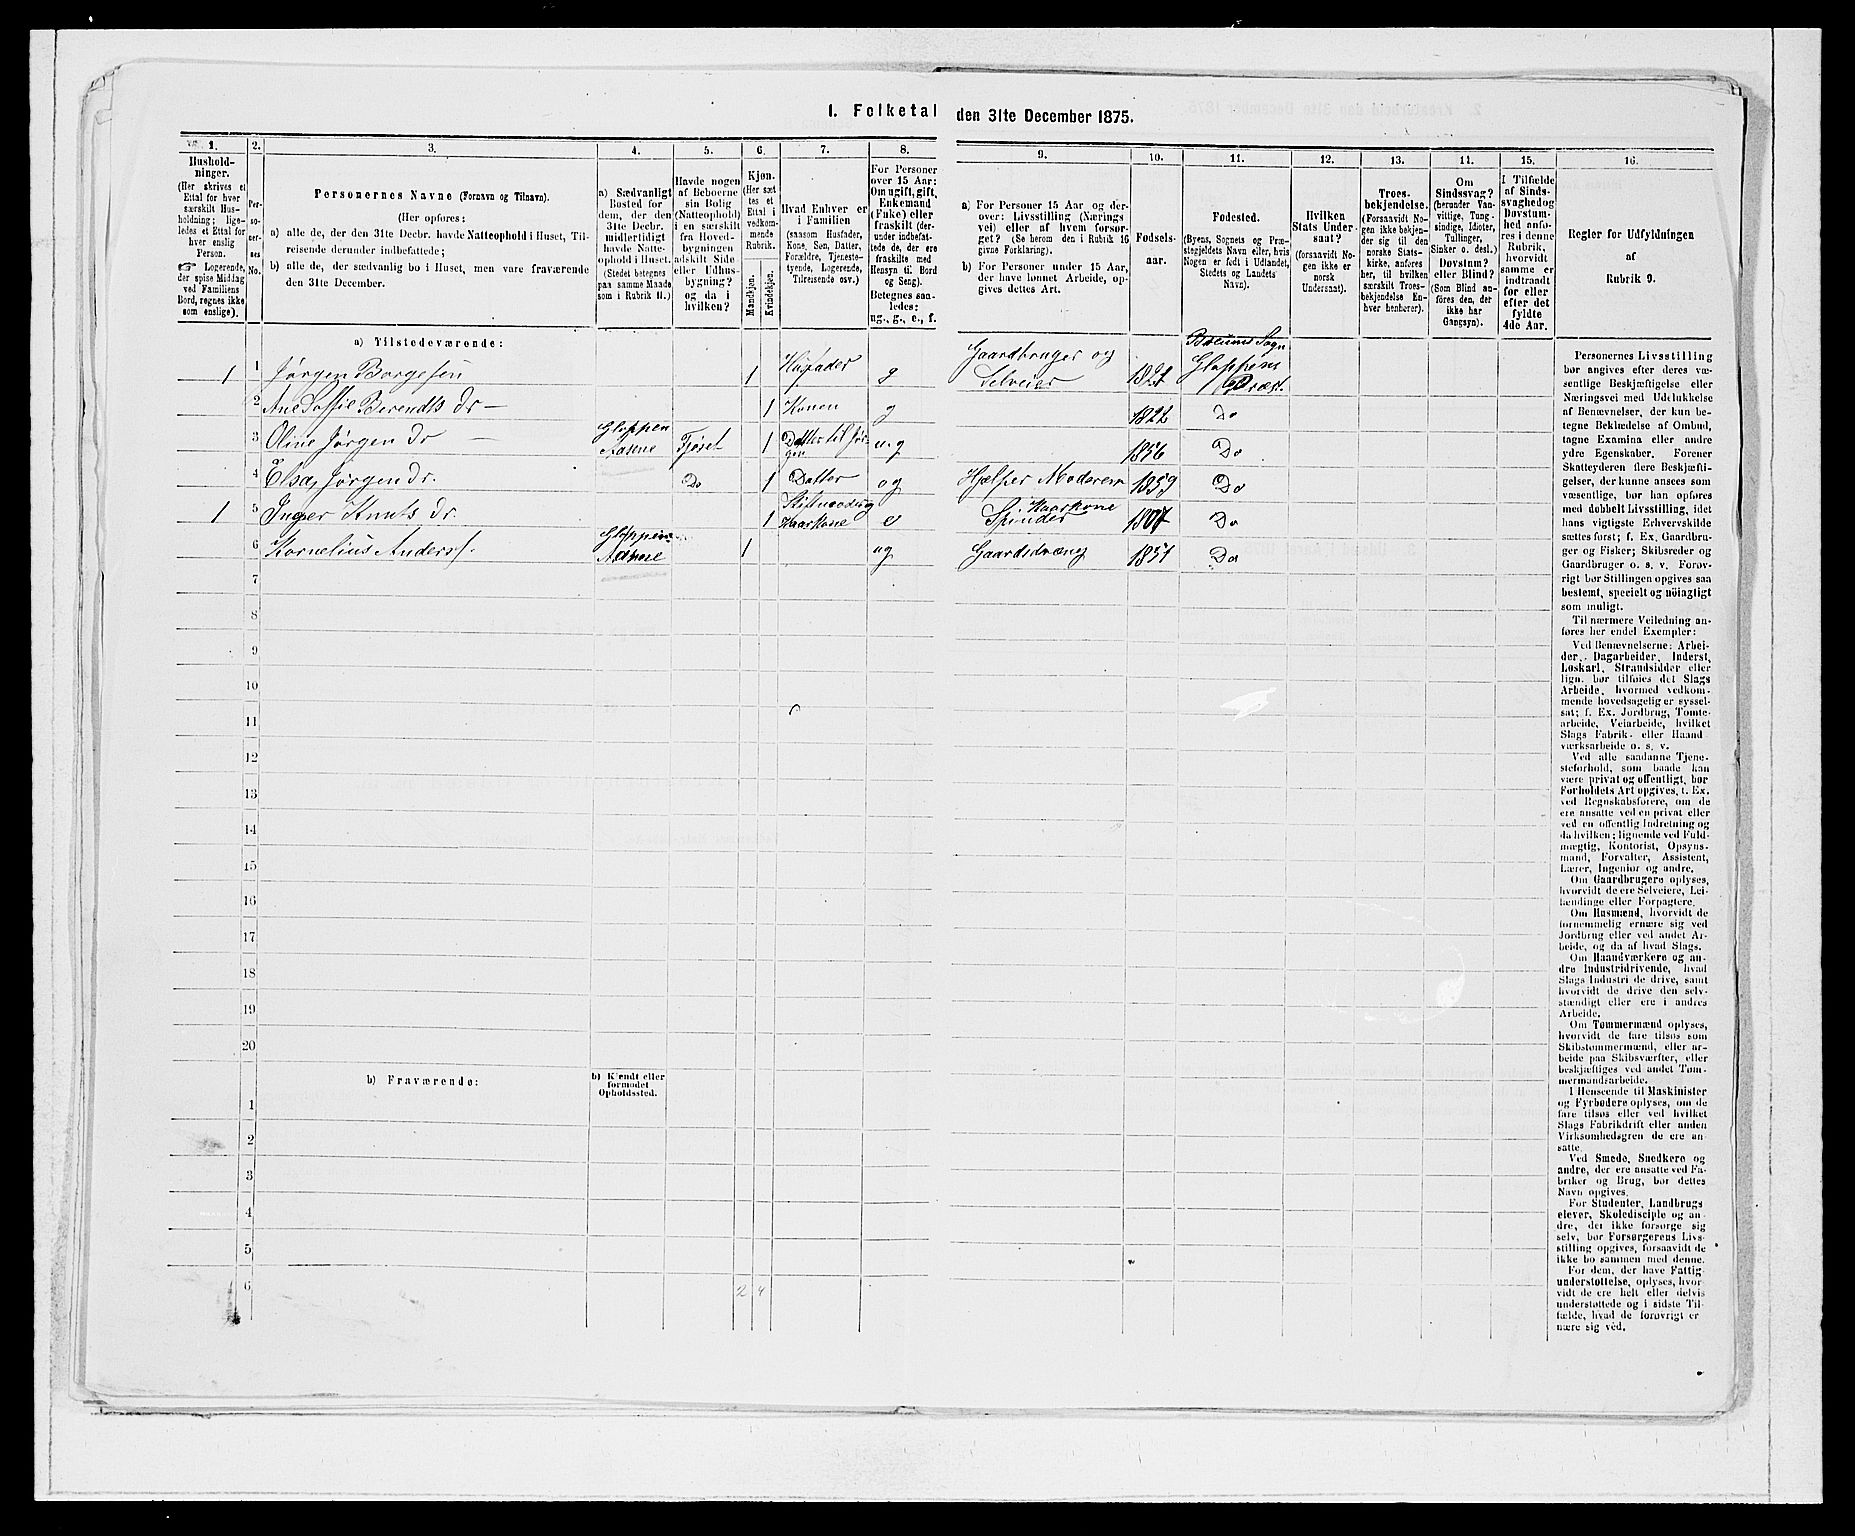 I. Folketal den 31te December 1875.
1. 2. 3. 4. 5. 6. 7. 8. 9. 10. 11. 12. 13. 14. 15. 16.
Hushold-
ninger.
(Her skrives et
Ettal for hver
særskilt Hus-
holdning; lige-
ledes et Ettal for
hver enslig
Person.
☞ Logerende,
der spise Middag
ved Familiens
Bord, regnes ikke
som enslige).
Per-
so-
ner-
nes
No.
Personernes Navne (Fornavn og Tilnavn).
(Her opføres:
a) alle de, der den 31te Decbr. havde Natteophold i Huset, Til-
reisende derunder indbefattede;
b) alle de, der sædvanlig bo i Huset, men vare fraværende
den 31te December.
a) Sædvanligt
Bosted for
dem, der den
31te Decbr.
midlertidigt
havde Natte-
ophold i Huset.
(Stedet betegnes
paa samme Maade
som i Rubrik 11.)
Havde nogen
af Beboerne
sin Bolig
(Natteophold)
i en særskilt
fra Hoved-
bygningen
adskilt Side
eller Udhus-
bygning?
og da i
hvilken?
Kjøn.
(Her sæt-
tes et
Ettal i
vedkom-
mende
Rubrik.
Mandkjøn.
Kvindekjøn.
Hvad Enhver er
i Familien
(saasom Husfader,
Kone, Søn, Datter,
Forældre, Tjeneste-
tyende, Logerende,
Tilreisende osv.)
For Personer
over 15 Aar:
Om ugift, gift,
Enkemand
(Enke) eller
fraskilt (der-
under indbefat-
tede de, der ere
fraskilte med
Hensyn til Bord
og Seng).
Betegnes saa-
ledes:
ug., g., e., f.
a) For Personer 15 Aar og der-
over: Livsstilling (Nærings
vei) eller af hvem forsør-
get? (Se herom den i Rubrik 16
givne Forklaring).
b) For Personer under 15 Aar,
der have lønnet Arbeide, op-
gives dettes Art.
Fødsels-
aar.
Fødested.
(Byens, Sognets og Præ-
stegjeldets Navn eller, hvis
Nogen er født i Udlandet,
Stedets og Landets
Navn).
Hvilken
Stats Under-
saat?
(forsaavidt No-
gen ikke er
norsk
Undersaat).
Troes-
bekjendelse.
(Forsaavidt No-
gen ikke bekjen-
der sig til den
norske Stats-
kirke, anføres
her, til hvilken
særskilt Troes-
bekjendelse En-
hver henhører).
Om
Sindssvag?
(herunder Van-
vittige, Tung-
sindige, Idioter,
Tullinger,
Sinker o. desl.).
Døvstum?
eller Blind?
(Som Blind an-
føres den, der
ikke har
Gangsyn).
I Tilfælde
af Sinds-
svaghed og
Døvstum-
hed anfø-
res i denne
Rubrik,
hvorvidt
samme er
indtraadt
før eller
efter det
fyldte
4de Aar.
Regler for Udfyldningen
af
Rubrik 9.
a) Tilstedeværende:
1 1 Jørgen Børgesen 1 Husfader g Gaardbruger og Selveier 1821 Breums Sogn Gloppens Præst.
2 Ane Soffie Berendts Dr — 1 Konen g 1822 Do
3 Oline Jørgen Dr — Gloppen Aasene Fjøset 1 Datter til Jør-gen ug 1856 Do
4 Elsa Jørgen Dr. Do 1 Datter ug Hjælper Moderen 1859 Do
1 5 Inger Knuts Dr. 1 Kaarkone e Kaarkone Spinder 1807 Do
6 Kornelius Anders. Gloppen 1 ug Gaardsdræng 1851 Do
7
8
9
10
11
12
13
14
15
16
17
18
19
20
b) Fraværende:
b) Kjendt eller
formodet
Opholdssted.
1
2
3
4
5
6 2 4
Personernes Livsstilling
bør angives efter deres væ-
sentlige Beskjæftigelse eller
Næringsvei med Udelukkelse
af Benævnelser, der kun be-
tegne Beklædelse af Ombud,
tagne Examina eller andre
ydre Egenskaber. Forener
Skatteyderen flere Beskjæfti-
gelser, der kunne ansees som
væsentlige, bør han opføres
med dobbelt Livsstilling, idet
hans vigtigste Erhvervskilde
sættes først; f. Ex. Gaardbru-
ger og Fisker; Skibsreder og
Gaardbruger o. s. v. Forøv-
rigt bør Stillingen opgives saa
bestemt, specielt og nöiagtigt
som muligt.
Til nærmere Veiledning an-
føres her endel Exempler:
Ved Benævnelserne: Arbei-
der, Dagarbeider, Inderst,
Løskarl, Strandsidder eller
lign. bør tilføies det Slags
Arbeide, hvormed vedkom-
mende hovedsagelig er syssel-
sat; f. Ex. Jordbrug, Tomte-
arbeide, Veiarbeide, hvilket
Slags Fabrik- eller Haand
værksarbeide o. s. v.
Ved alle saadanne Tjene-
steforhold, som baade kan
være privat og offentligt, bør
Forholdets Art opgives, f. Ex.
ved Regnskabsførere, om de
ere ansatte ved en privat eller
ved en offentlig Indretning og
da hvilken; lignende ved Fuld-
mægtig, Kontorist, Opsyns-
mand, Forvalter, Assistent,
Lærer, Ingeniør og andre.
Om Gaardbrugere oplyses,
hvorvidt de ere Selveiere, Lei-
lændinge eller Forpagtere.
Om Husmænd, hvorvidt de
fornemmelig ernære sig ved
Jordbrug eller ved andet Ar-
beide, og da af hvad Slags.
Om Haandværkere og an-
dre Industridrivende, hvad
Slags Industri de drive, samt
hvorvidt de drive den selv-
stændigt eller ere i andres
Arbeide.
Om Tømmermænd oplyses,
hvorvidt de fare tilsøs som
Skibstømmermænd, eller ar-
beide paa Skibsværfter, eller
beskjæftiges ved andet Tøm-
mermandsarbeide.
I Henseende til Maskinister
og Fyrbødere oplyses, om de
fare tilsøs eller ved hvilket
Slags Fabrikdrift eller anden
Virksomhedsgren de ere an-
satte.
Ved Smede, Snedkere og
andre, der ere ansatte ved Fa-
briker og Brug, bør dettes
Navn opgives.
For Studenter, Landbrugs
elever, Skoledisciple og an-
dre, der ikke forsørge sig
selv, bør Forsørgerens Livs-
stilling opgives, forsaavidt de
ikke bo sammen med denne.
For dem, der have Fattig-
understøttelse, oplyses, hvor-
vidt de ere helt eller delvis
understøttede og i sidste Til-
fælde, hvad de forøvrigt er
nære sig ved.